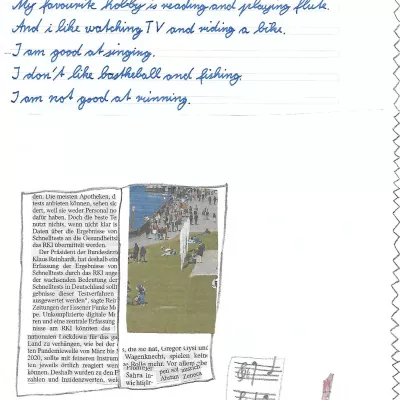 My favourite hobby is reading and playing flute.
And i like watching TV and riding a bike.
I am good at singing.
I don't like bastheball and fishing.
I am not good at running.
den. Die meisten Apotheken, d
tests anbieten können, sehen sic
dert, weil sie weder Personal no
dafür haben. Doch die beste Te
nutzt nichts, wenn nicht klar is
Daten über die Ergebnisse von
Schnelltests an die Gesundheitsä
das RKI übermittelt werden.
Der Präsident der Bundesärzte
Klaus Reinhardt, hat deshalb eine
Erfassung der Ergebnisse von
Schnelltests durch das RKI ange
der wachsenden Bedeutung der
Schnelltests in Deutschland sollt
gebnisse dieser Testverfahren
ausgewertet werden", sagte Rein
Zeitungen der Essener Funke Me
pe. Unkomplizierte digitale Me
ren und eine zentrale Erfassung
nisse am RKI könnten das
nationalen Lockdown für das ga
Land zu verhängen, wie bei der
ten Pandemiewelle von März bis
2020, sollte mit feineren Instrum
ten jeweils örtlich reagiert werd
können. Deshalb wurden zu den F
zahlen und Insidenzwerten, weld
die sie hat, Gregor Gysi und
Wagenknecht, spielen keine
Rolle mehr. Vor allem
Sahra
wichtige
Astra Zeneca